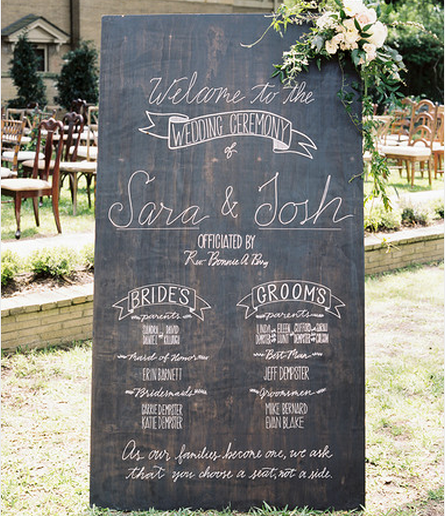 Welcome to the
WEDDING CEREMONY
of
Sara & Josh
OFFICIATED BY
Rev Bonnie A.
BRIDE'S GROOM'S
parents parents
DAVID LINDA EILEEN CLIFFORD
DEMPSTER
Maid of Honor Best Man
ERIN BARNETT JEFF DEMPSTER
Bridesmaids Groomsmen
CARRIE DEMPSTER MIKE BERNARD
KATIE DEMPSTER EVAN BLAKE
As our families become one, we ask
that you choose a seat, not a side.